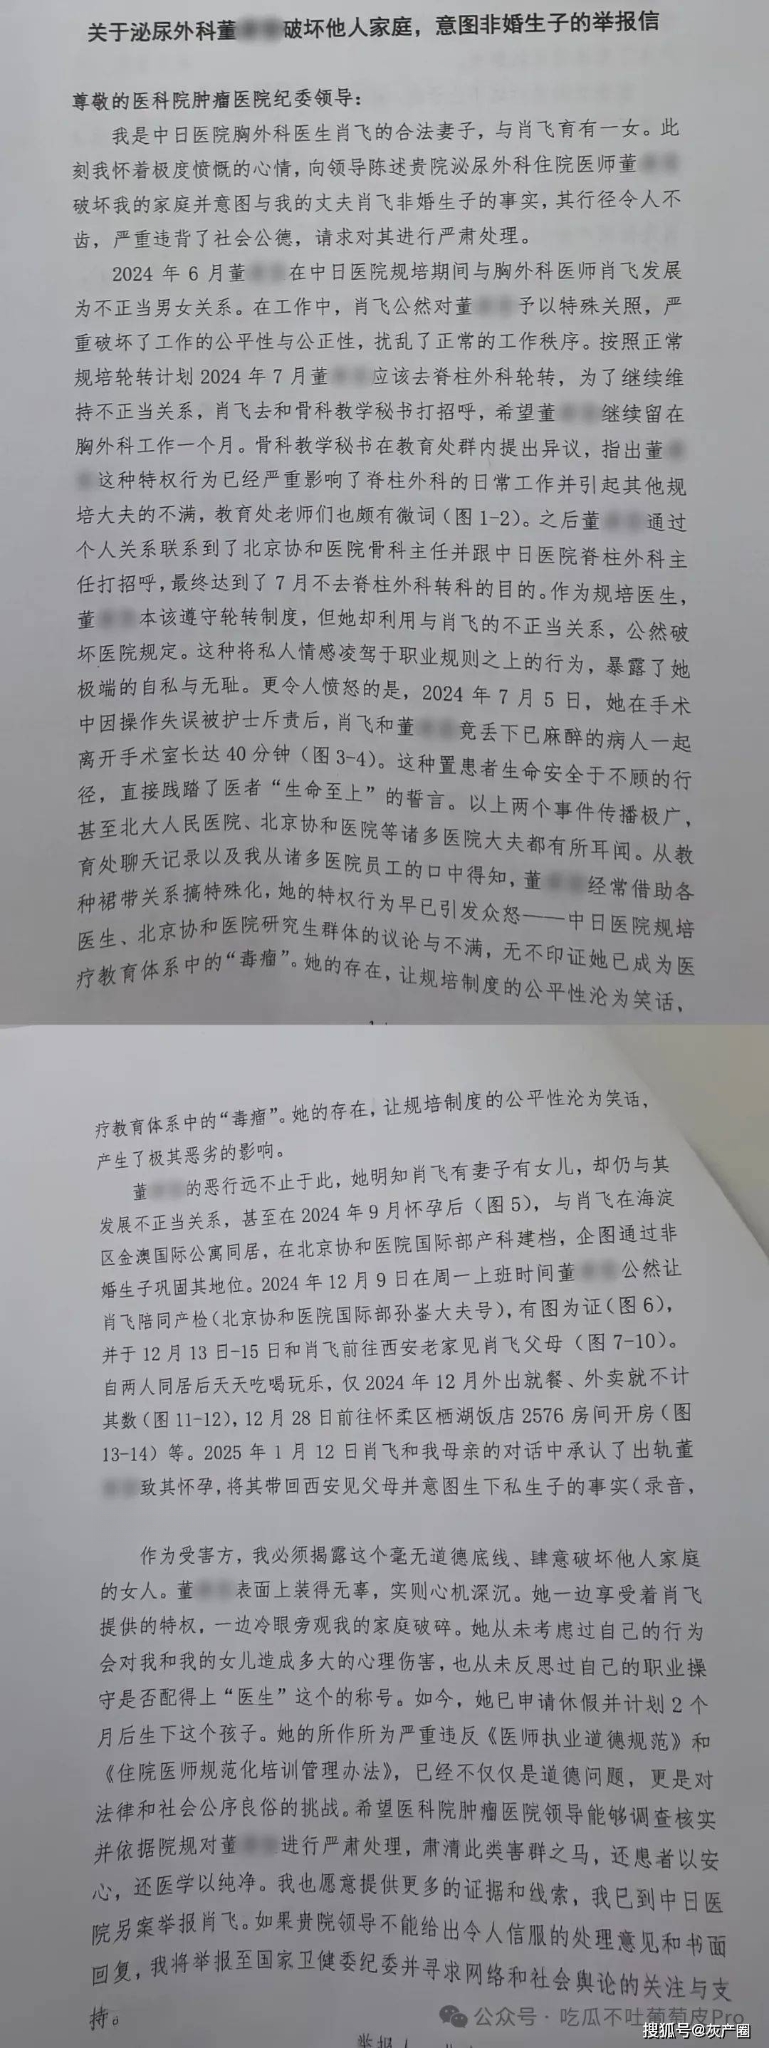 关于泌尿外科董破坏他人家庭，意图非婚生子的举报信
尊敬的医科院肿瘤医院纪委领导：
我是中日医院胸外科医生肖飞的合法妻子，与肖飞育有一女。此
刻我怀着极度愤慨的心情，向领导陈述贵院泌尿外科住院医师董
破坏我的家庭并意图与我的丈夫肖飞非婚生子的事实，其行径令人不
齿，严重违背了社会公德，请求对其进行严肃处理。
2024 年 6 月董在中日医院规培期间与胸外科医师肖飞发展
为不正当男女关系。在工作中，肖飞公然对董予以特殊关照，严
重破坏了工作的公平性与公正性，扰乱了正常的工作秩序。按照正常
规培轮转计划 2024 年 7 月董应该去脊柱外科轮转，为了继续维
持不正当关系，肖飞去和骨科教学秘书打招呼，希望董继续留在
胸外科工作一个月。骨科教学秘书在教育处群内提出异议，指出董
这种特权行为已经严重影响了脊柱外科的日常工作并引起其他规
培大夫的不满，教育处老师们也颇有微词（图 1-2）。之后董通过
个人关系联系到了北京协和医院骨科主任并跟中日医院脊柱外科主
任打招呼，最终达到了 7 月不去脊柱外科转科的目的。作为规培医生，
董本该遵守轮转制度，但她却利用与肖飞的不正当关系，公然破
坏医院规定。这种将私人情感凌驾于职业规则之上的行为，暴露了她
极端的自私与无耻。更令人愤怒的是，2024 年 7 月 5 日，她在手术
中因操作失误被护士斥责后，肖飞和董竟丢下已麻醉的病人一起
离开手术室长达 40 分钟（图 3-4）。这种置患者生命安全于不顾的行
径，直接践踏了医者“生命至上”的誓言。以上两个事件传播极广，
甚至北大人民医院、北京协和医院等诸多医院大夫都有所耳闻。从教
育处聊天记录以及我从诸多医院员工的口中得知，董经常借助各
种裙带关系搞特殊化，她的特权行为早已引发众怒——中日医院规培
医生、北京协和医院研究生群体的议论与不满，无不印证她已成为医
疗教育体系中的“毒瘤”。她的存在，让规培制度的公平性沦为笑话，
疗教育体系中的“毒瘤”。她的存在，让规培制度的公平性沦为笑话，
产生了极其恶劣的影响。
董的恶行远不止于此，她明知肖飞有妻子有女儿，却仍与其
发展不正当关系，甚至在 2024 年 9 月怀孕后（图 5），与肖飞在海淀
区金澳国际公寓同居，在北京协和医院国际部产科建档，企图通过非
婚生子巩固其地位。2024 年 12 月 9 日在周一上班时间董公然让
肖飞陪同产检（北京协和医院国际部孙崟大夫号），有图为证（图 6），
并于 12 月 13 日-15 日和肖飞前往西安老家见肖飞父母（图 7-10）。
自两人同居后天天吃喝玩乐，仅 2024 年 12 月外出就餐、外卖就不计
其数（图 11-12），12 月 28 日前往怀柔区栖湖饭店 2576 房间开房（图
13-14）等。2025 年 1 月 12 日肖飞和我母亲的对话中承认了出轨董
致其怀孕，将其带回西安见父母并意图生下私生子的事实（录音，
作为受害方，我必须揭露这个毫无道德底线、肆意破坏他人家庭
的女人。董表面上装得无辜，实则心机深沉。她一边享受着肖飞
提供的特权，一边冷眼旁观我的家庭破碎。她从未考虑过自己的行为
会对我和我的女儿造成多大的心理伤害，也从未反思过自己的职业操
守是否配得上“医生”这个的称号。如今，她已申请休假并计划 2 个
月后生下这个孩子。她的所作所为严重违反《医师执业道德规范》和
《住院医师规范化培训管理办法》，已经不仅仅是道德问题，更是对
法律和社会公序良俗的挑战。希望医科院肿瘤医院领导能够调查核实
并依据院规对董进行严肃处理，肃清此类害群之马，还患者以安
心，还医学以纯净。我也愿意提供更多的证据和线索，我已到中日医
院另案举报肖飞。如果贵院领导不能给出令人信服的处理意见和书面
回复，我将举报至国家卫健委纪委并寻求网络和社会舆论的关注与支
持。
公众号 · 吃瓜不吐葡萄皮Pro
搜狐号@灰产圈
举报人